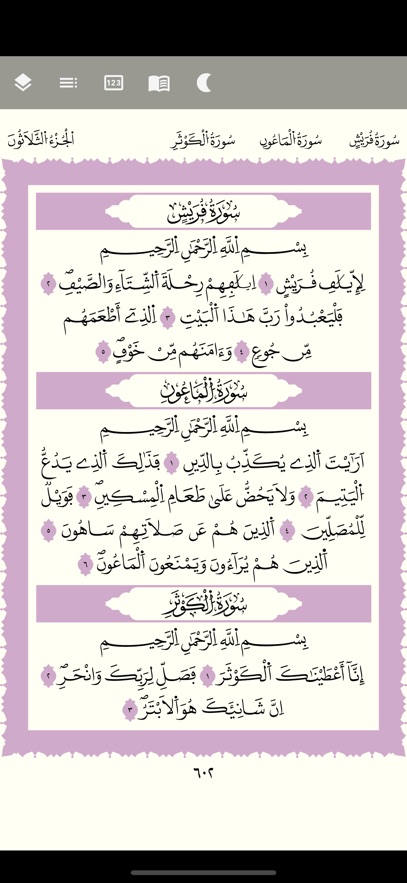 123
سُورَةُ قُرَيْشٍ سُورَةُ الْمَاعُونِ سُورَةُ الْكَوْثَرِ الْجُزْءُ الثَّلَاثُونَ
سُورَةُ قُرَيْشٍ
بِسْمِ اِ۬للَّهِ اِ۬لرَّحْمَٰنِ اِ۬لرَّحِيمِ
لِإِيلَٰفِ قُرَيْشٍ ١ اِ۪لَٰفِهِمْ رِحْلَةَ اَ۬لشِّتَآءِ وَالصَّيْفِۖ ٢
فَلْيَعْبُدُواْ رَبَّ هَٰذَا اَ۬لْبَيْتِ ٣ اِ۬لذِےٓ أَطْعَمَهُم
مِّن جُوعٖ ٤ وَءَامَنَهُم مِّنْ خَوْفٖۖ ٥
سُورَةُ الْمَاعُونِ
بِسْمِ اِ۬للَّهِ اِ۬لرَّحْمَٰنِ اِ۬لرَّحِيمِ
اَرَٰٓيْتَ اَ۬لذِے يُكَذِّبُ بِالدِّينِ ١ فَذَٰلِكَ اَ۬لذِے يَدُعُّ
اُ۬لْيَتِيمَ ٢ وَلَا يَحُضُّ عَلَىٰ طَعَامِ اِ۬لْمِسْكِينِۖ ٣ فَوَيْلٞ
لِّلْمُصَلِّينَ ٤ اَ۬لذِينَ هُمْ عَن صَلَاتِهِمْ سَاهُونَ ٥
اَ۬لذِينَ هُمْ يُرَآءُونَ وَيَمْنَعُونَ اَ۬لْمَاعُونَۖ ٦
سُورَةُ الْكَوْثَرِ
بِسْمِ اِ۬للَّهِ اِ۬لرَّحْمَٰنِ اِ۬لرَّحِيمِ
إِنَّآ أَعْطَيْنَٰكَ اَ۬لْكَوْثَرَ ١ فَصَلِّ لِرَبِّكَ وَانْحَرِۖ ٢
اِنَّ شَانِئَكَ هُوَ اَ۬لَابْتَرُۖ ٣
٦٠٢